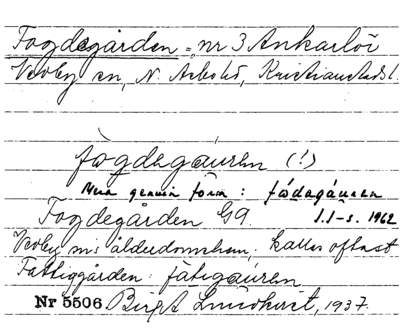 Fogdegården = nr 3 Ankarlöv
Verby sn, N. Åsbo hd, Kristianstads l.
fogdegåuren (!)
Mera genuin form: fódagåuren
Fogdegården G9. 1.1-s. 1962
Verby sn:s ålderdomshem; kallas oftast
Fattiggården: fàtigåuren
Nr 5506 Birgit Lundkvist, 1937.